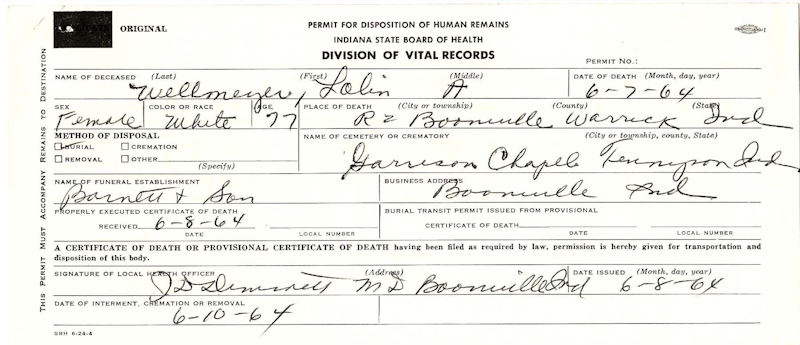 ORIGINAL
PERMIT FOR DISPOSITION OF HUMAN REMAINS
INDIANA STATE BOARD OF HEALTH
DIVISION OF VITAL RECORDS
PERMIT NO.:
THIS PERMIT MUST ACCOMPANY REMAINS TO DESTINATION
NAME OF DECEASED (Last) (First) (Middle) DATE OF DEATH (Month, day, year)
Wellmeyer, A 6-7-64
SEX COLOR OR RACE AGE PLACE OF DEATH (City or township) (County) (State)
Female White 77 R2 Boonville Warrick Ind
METHOD OF DISPOSAL NAME OF CEMETERY OR CREMATORY (City or township, county, State)
BURIAL CREMATION
REMOVAL OTHER (Specify)
Garrison Chapel Tennyson Ind
NAME OF FUNERAL ESTABLISHMENT BUSINESS ADDRESS
Barnett & Son Boonville Ind
PROPERLY EXECUTED CERTIFICATE OF DEATH BURIAL TRANSIT PERMIT ISSUED FROM PROVISIONAL
RECEIVED 6-8-64 CERTIFICATE OF DEATH
DATE LOCAL NUMBER DATE LOCAL NUMBER
A CERTIFICATE OF DEATH OR PROVISIONAL CERTIFICATE OF DEATH having been filed as required by law, permission is hereby given for transportation and
disposition of this body.
SIGNATURE OF LOCAL HEALTH OFFICER (Address) DATE ISSUED (Month, day, year)
J D MD Boonville Ind 6-8-64
DATE OF INTERMENT, CREMATION OR REMOVAL
6-10-64
SBH 6-24-4